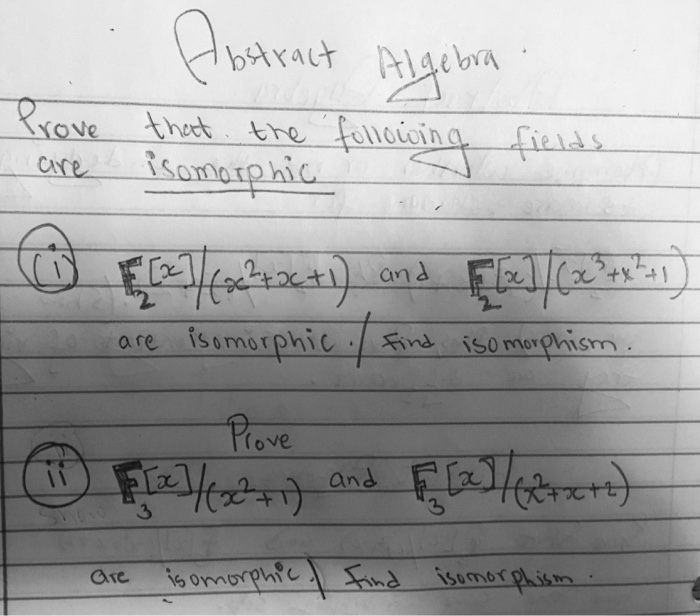 Abstract Algebra
Prove that the following fields
are isomorphic
(i) F₂[x]/(x²+x+1) and F₂[x]/(x³+x²+1)
are isomorphic. / Find isomorphism.
Prove
ii F₃[x]/(x²+1) and F₃[x]/(x²+x+2)
are isomorphic. / Find isomorphism.